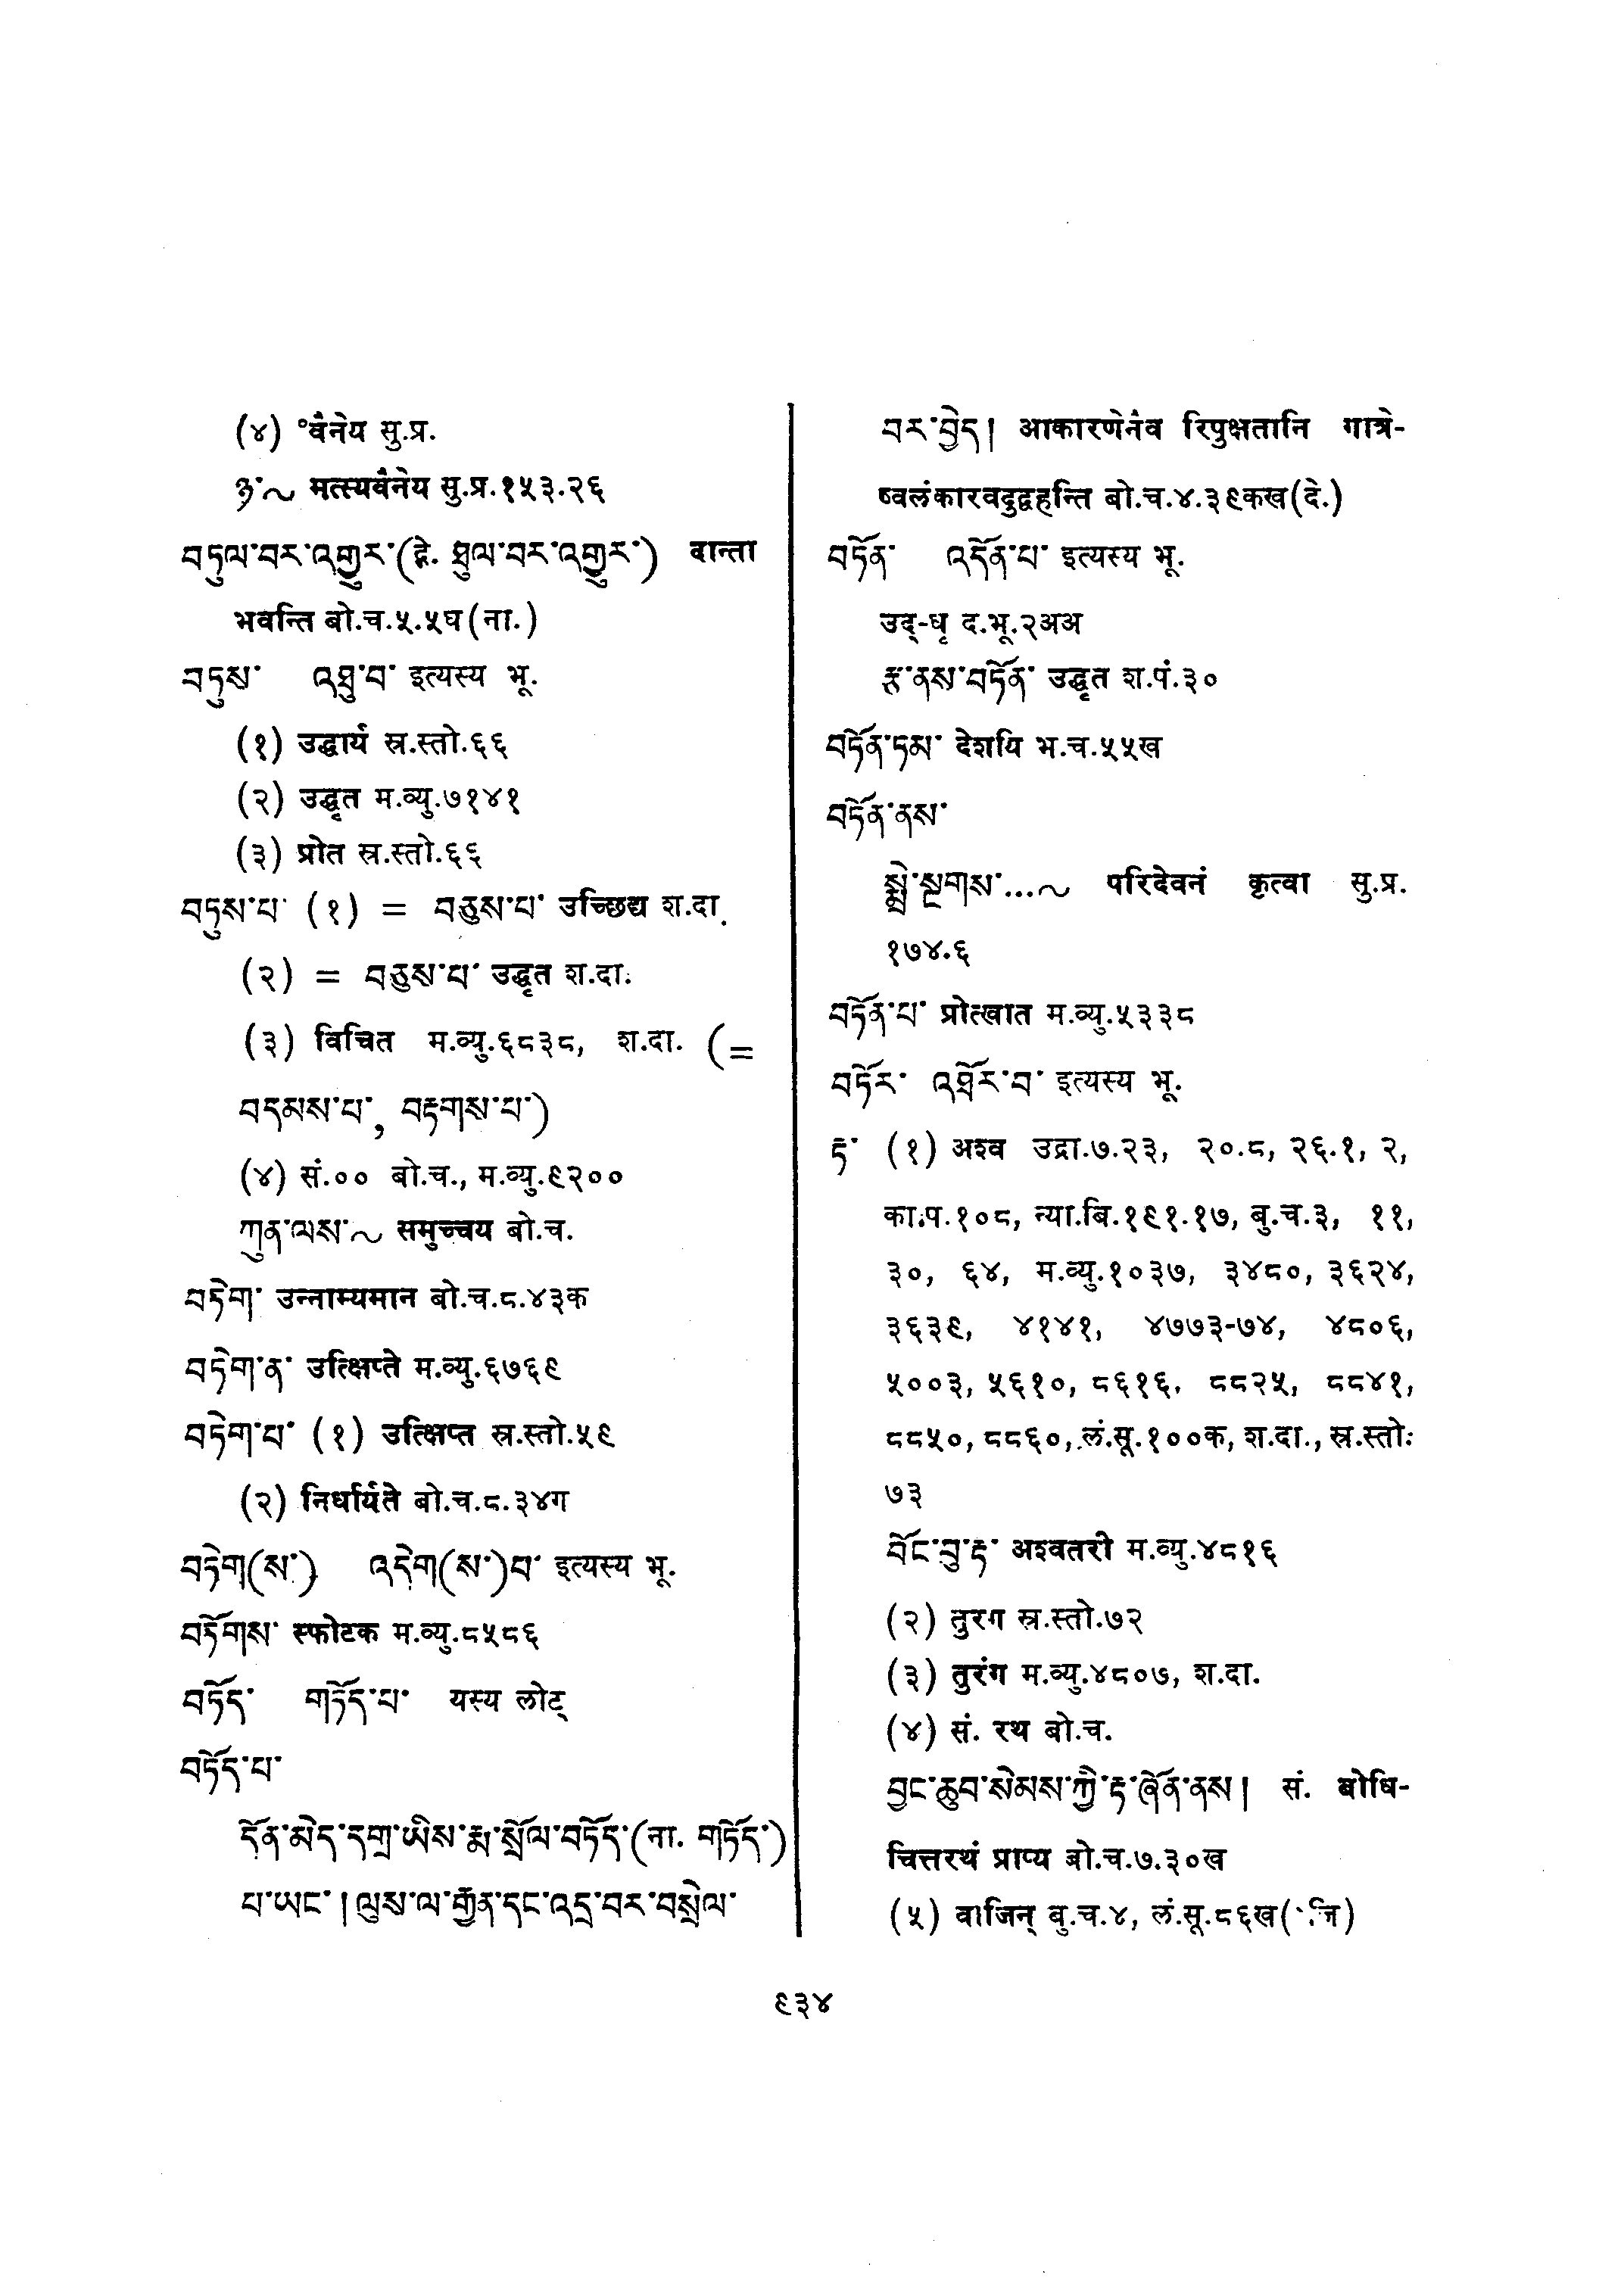 (४) °वैनेय सु.प्र.
ཉ་~ मत्स्यवैनेय सु.प्र.१५३.२६
བཏུལ་བར་འགྱུར་(དྷེ. ཐུལ་བར་འགྱུར་) दान्ता
भवन्ति बो.च.५.५घ(ना.)
བཏུས་ འཐུ་བ་ इत्यस्य भू.
(१) उद्धार्य स्र.स्तो.६६
(२) उद्धृत म.व्यु.७१४१
(३) प्रोत स्र.स्तो.६६
བཏུས་པ་ (१) = བཅུས་པ་ उच्छिद्य श.दा.
(२) = བཅུས་པ་ उद्धृत श.दा.
(३) विचित म.व्यु.६८३८, श.दा. (=
བདམས་པ་, བརྟགས་པ་)
(४) सं.०० बो.च., म.व्यु.९२००
ཀུན་ལས་~ समुच्चय बो.च.
བཏེག་ उन्नाम्यमान बो.च.८.४३क
བཏེག་ན་ उत्क्षिप्ते म.व्यु.६७६९
བཏེག་པ་ (१) उत्क्षिप्त स्र.स्तो.५९
(२) निर्धार्यते बो.च.८.३४ग
བཏེག(ས་) འདེག(ས་)བ་ इत्यस्य भू.
བཏོགས་ स्फोटक म.व्यु.८५८६
བཏོད་ གཏོད་པ་ यस्य लोट्
བཏོད་པ་
དོན་མེད་དགྲ་ཡིས་རྨ་སྲོལ་བཏོད་(ना. གཏོད་)
པ་ཡང་། ལུས་ལ་རྒྱན་དང་འདྲ་བར་བསྲེལ་
བར་བྱེད། आकारणेनैव रिपुक्षतानि गात्रे-
ष्वलंकारवदुद्वहन्ति बो.च.४.३९कख(दे.)
བཏོན་ འདོན་པ་ इत्यस्य भू.
उद्-धृ द.भू.२अअ
རྩ་ནས་བཏོན་ उद्धृत श.पं.३०
བཏོན་ཏམ་ देशयि भ.च.५५ख
བཏོན་ནས་
སྨྲེ་སྔགས་...~ परिदेवनं कृत्वा सु.प्र.
१७४.६
བཏོན་པ་ प्रोत्खात म.व्यु.५३३८
བཏོར་ འཐོར་བ་ इत्यस्य भू.
རྟ་ (१) अश्व उद्रा.७.२३, २०.८, २६.१, २,
का.प.१०८, न्या.बि.१९१.१७, बु.च.३, ११,
३०, ६४, म.व्यु.१०३७, ३४८०, ३६२४,
३६३९, ४१४१, ४७७३-७४, ४८०६,
५००३, ५६१०, ८६१६, ८८२५, ८८४१,
८८५०, ८८६०, लं.सू.१००क, श.दा., स्र.स्तो.
७३
བོང་བུ་རྟ་ अश्वतरी म.व्यु.४८१६
(२) तुरग स्र.स्तो.७२
(३) तुरंग म.व्यु.४८०७, श.दा.
(४) सं. रथ बो.च.
བྱང་ཆུབ་སེམས་ཀྱི་རྟ་ཞོན་ནས། सं. बोधि-
चित्तरथं प्राप्य बो.च.७.३०ख
(५) वाजिन् बु.च.४, लं.सू.८६ख(°जि)
९३४